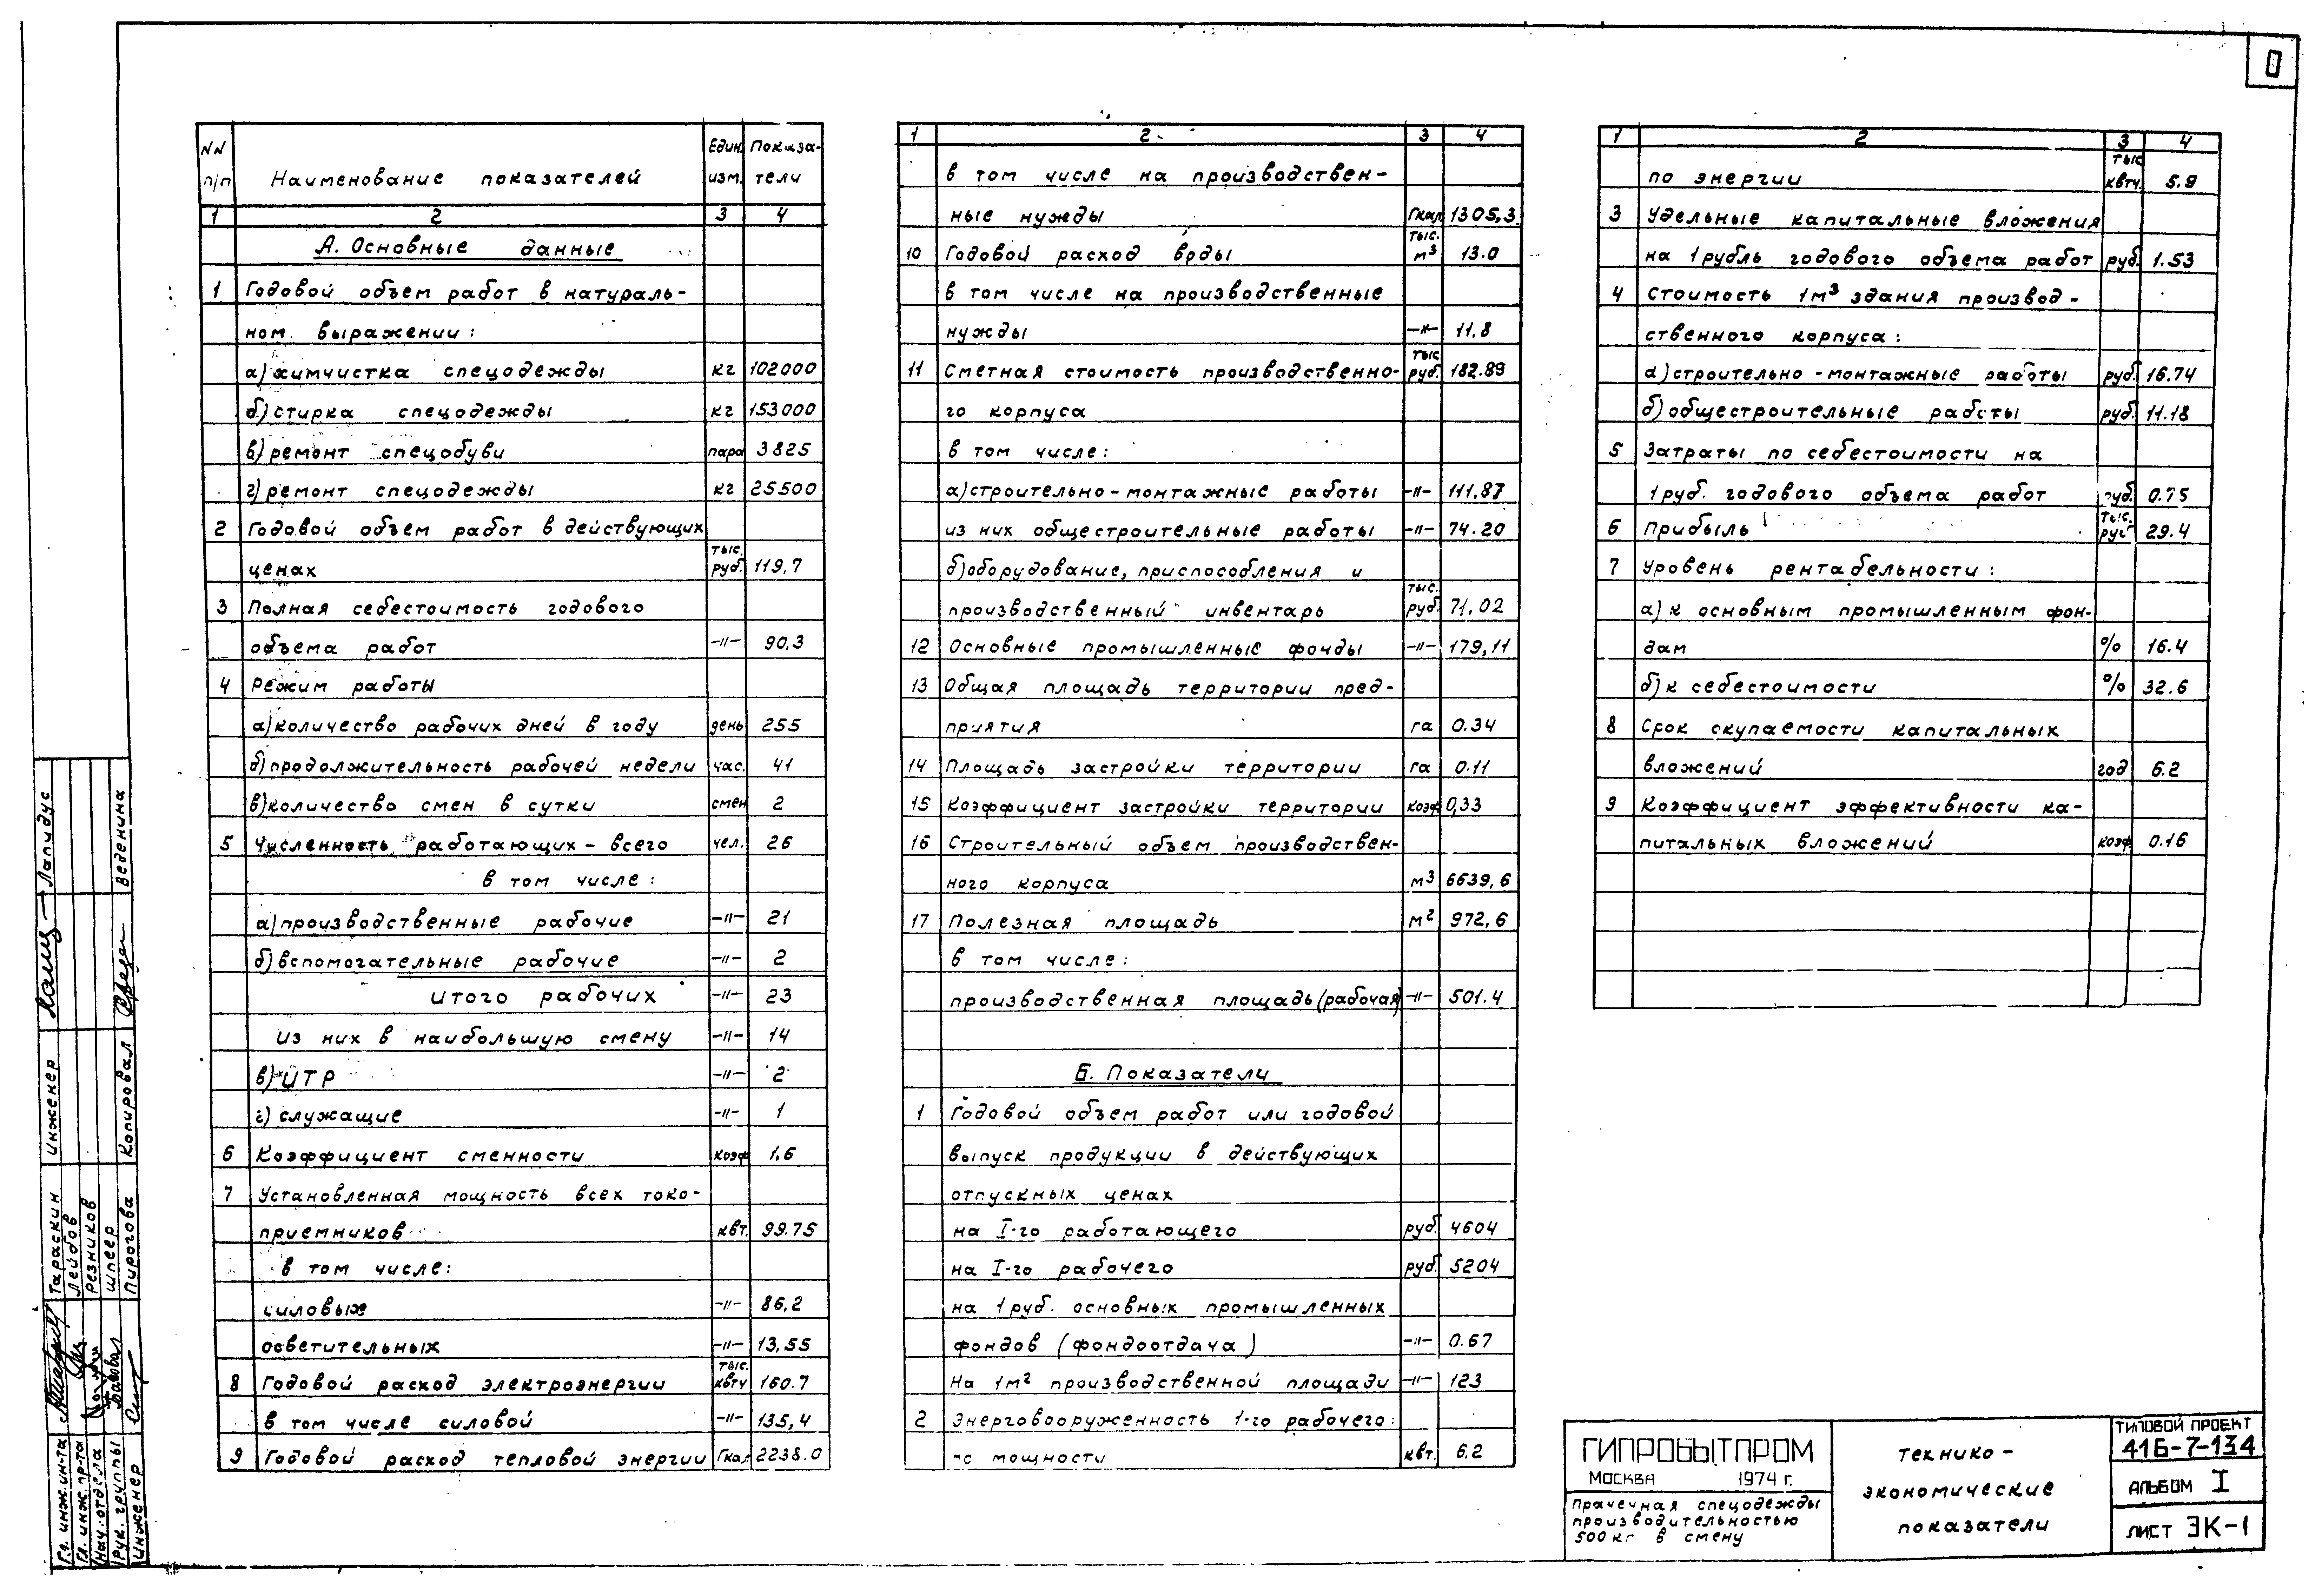 0
NN Един. Показа-
п/п Наименование показателей изм. тели
1 2 3 4
А. Основные данные
1 Годовой объем работ в натураль-
ном выражении:
а) химчистка спецодежды кг 102000
б) стирка спецодежды кг 153000
в) ремонт спецобуви пара 3825
г) ремонт спецодежды кг 25500
2 Годовой объем работ в действующих
ценах тыс. руб. 119,7
3 Полная себестоимость годового
объема работ -"- 90.3
4 Режим работы
а) количество рабочих дней в году день 255
б) продолжительность рабочей недели час. 41
в) количество смен в сутки смен 2
5 Численность работающих - всего чел. 26
в том числе:
а) производственные рабочие -"- 21
б) вспомогательные рабочие -"- 2
итого рабочих -"- 23
из них в наибольшую смену -"- 14
в) ИТР -"- 2
г) служащие -"- 1
6 Коэффициент сменности коэф 1.6
7 Установленная мощность всех токо-
приемников квт. 99.75
в том числе:
силовых -"- 86,2
осветительных -"- 13,55
8 Годовой расход электроэнергии тыс. квтч 160.7
в том числе силовой -"- 135,4
9 Годовой расход тепловой энергии Гкал 2238.0
1 2 3 4
в том числе на производствен-
ные нужды Гкал 1305,3
10 Годовой расход воды тыс. м³ 13.0
в том числе на производственные
нужды -"- 11.8
11 Сметная стоимость производственно- тыс руб. 182.89
го корпуса
в том числе:
а) строительно-монтажные работы -"- 111.87
из них общестроительные работы -"- 74.20
б) оборудование, приспособления и
производственный инвентарь тыс. руб. 71.02
12 Основные промышленные фонды -"- 179,11
13 Общая площадь территории пред-
приятия га 0.34
14 Площадь застройки территории га 0.11
15 Коэффициент застройки территории коэф 0,33
16 Строительный объем производствен-
ного корпуса м³ 6639,6
17 Полезная площадь м² 972,6
в том числе:
производственная площадь (рабочая) -"- 501.4
Б. Показатели
1 Годовой объем работ или годовой
выпуск продукции в действующих
отпускных ценах
на I-го работающего руб. 4604
на I-го рабочего руб. 5204
на 1 руб. основных промышленных
фондов (фондоотдача) -"- 0.67
На 1м² производственной площади -"- 123
2 Энерговооруженность 1-го рабочего:
по мощности квт. 6.2
1 2 3 4
по энергии тыс квтч. 5.9
3 Удельные капитальные вложения
на 1 рубль годового объема работ руб. 1.53
4 Стоимость 1м³ здания производ-
ственного корпуса:
а) строительно-монтажные работы руб. 16.74
б) общестроительные работы руб. 11.18
5 Затраты по себестоимости на
1 руб. годового объема работ руб. 0.75
6 Прибыль тыс. руб 29.4
7 Уровень рентабельности:
а) к основным промышленным фон-
дам % 16.4
б) к себестоимости % 32.6
8 Срок окупаемости капитальных
вложений год 6.2
9 Коэффициент эффективности ка-
питальных вложений коэф 0.16
ГИПРОБЫТПРОМ
МОСКВА 1974 г.
Прачечная спецодежды
производительностью
500 кг в смену
технико-
экономические
показатели
ТИПОВОЙ ПРОЕКТ
416-7-134
АЛЬБОМ I
ЛИСТ ЭК-1
Гл. инж. ин-та Тараскин инженер Лапидус
Гл. инж. пр-та Лейбов
Нач. отдела Резников
Рук. группы Шпеер
Инженер Пирогова Копировал Веденина